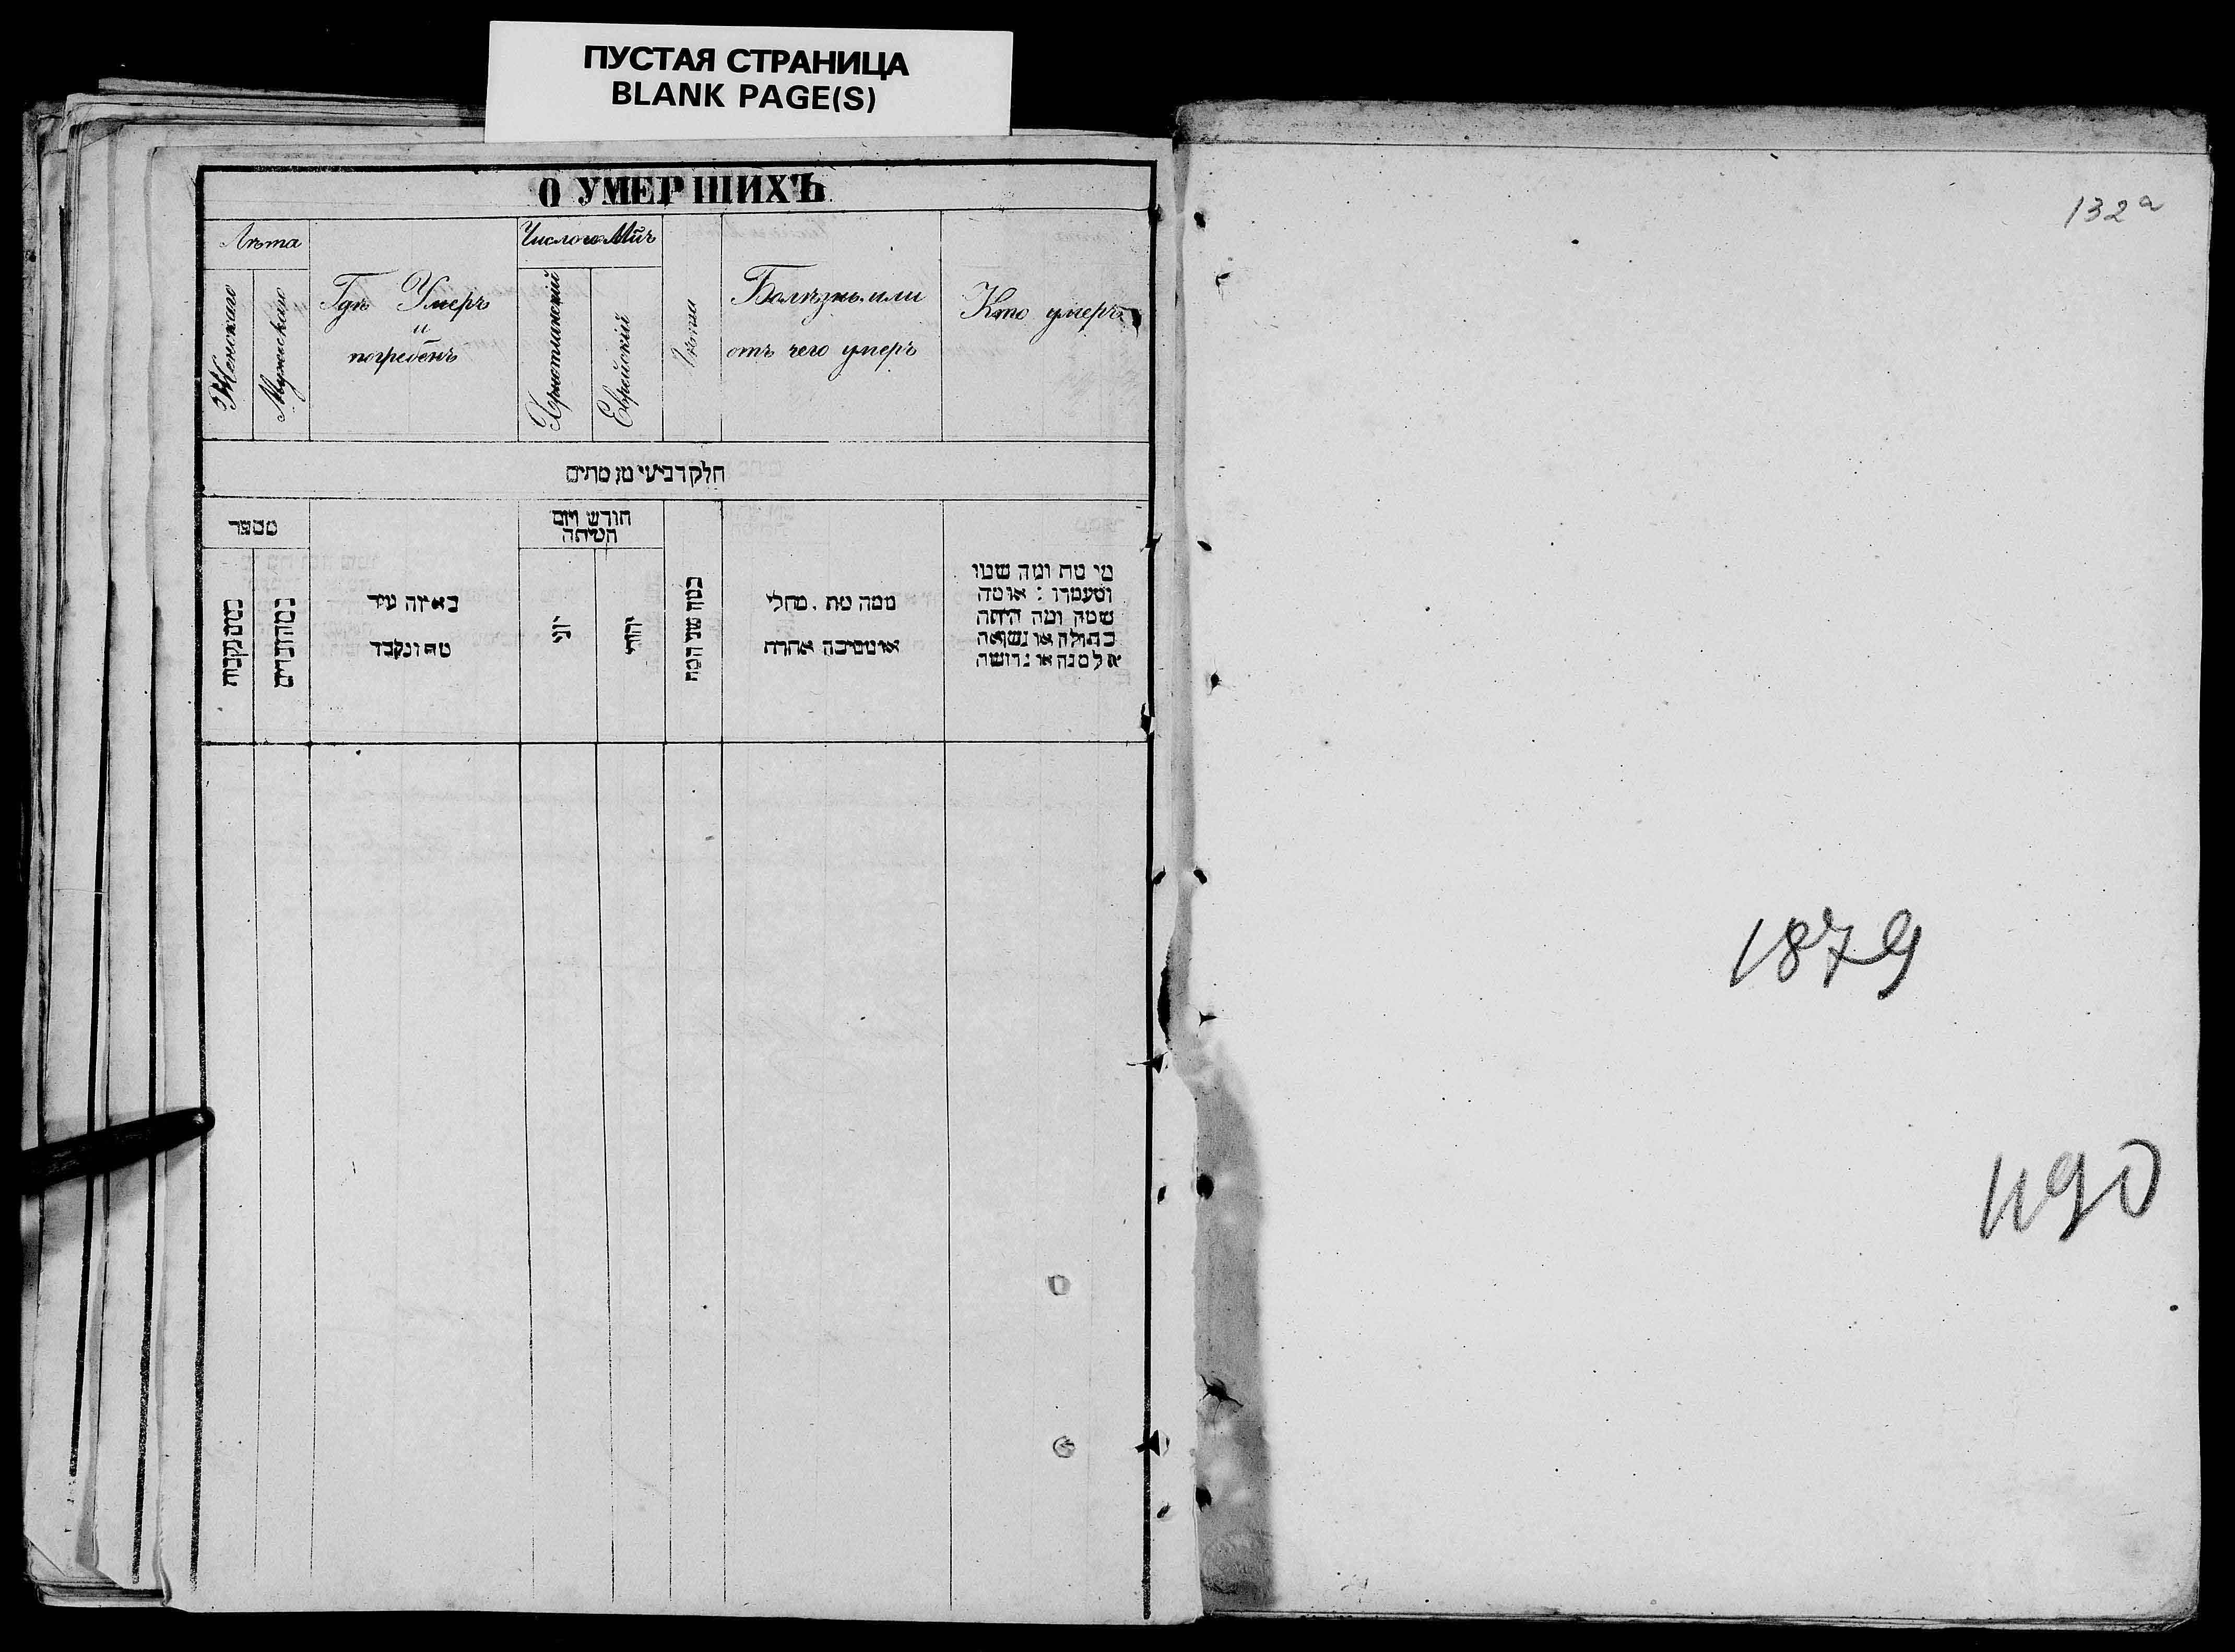 ПУСТАЯ СТРАНИЦА
BLANK PAGE(S)
О УМЕРШИХЪ
Лѣта
Женскаго
Мужескаго
Гдѣ Умеръ
и
погребенъ
Число и Мць
Христіанскій
Еврейскій
Лѣта
Болѣзнь или
отъ чего умеръ
Кто умеръ
חלק רביעי מן מתים
מספר
כמה נקבות
כמה זכרים
באיזה עיר
מת ונקבר
חודש ויום
המיתה
יוני
יהודי
כמה שני המת
ממה מת . מחלי
או מסיבה אחרת
מי מת ומה שמו
ומעמדו : או מה
שמה ומה היתה
בתולה או נשואה
אלמנה או גרושה
132а
1879
1190